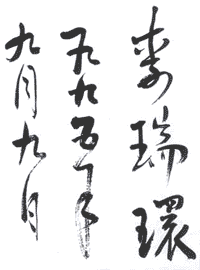 李瑞環
一九九五年
九月九日